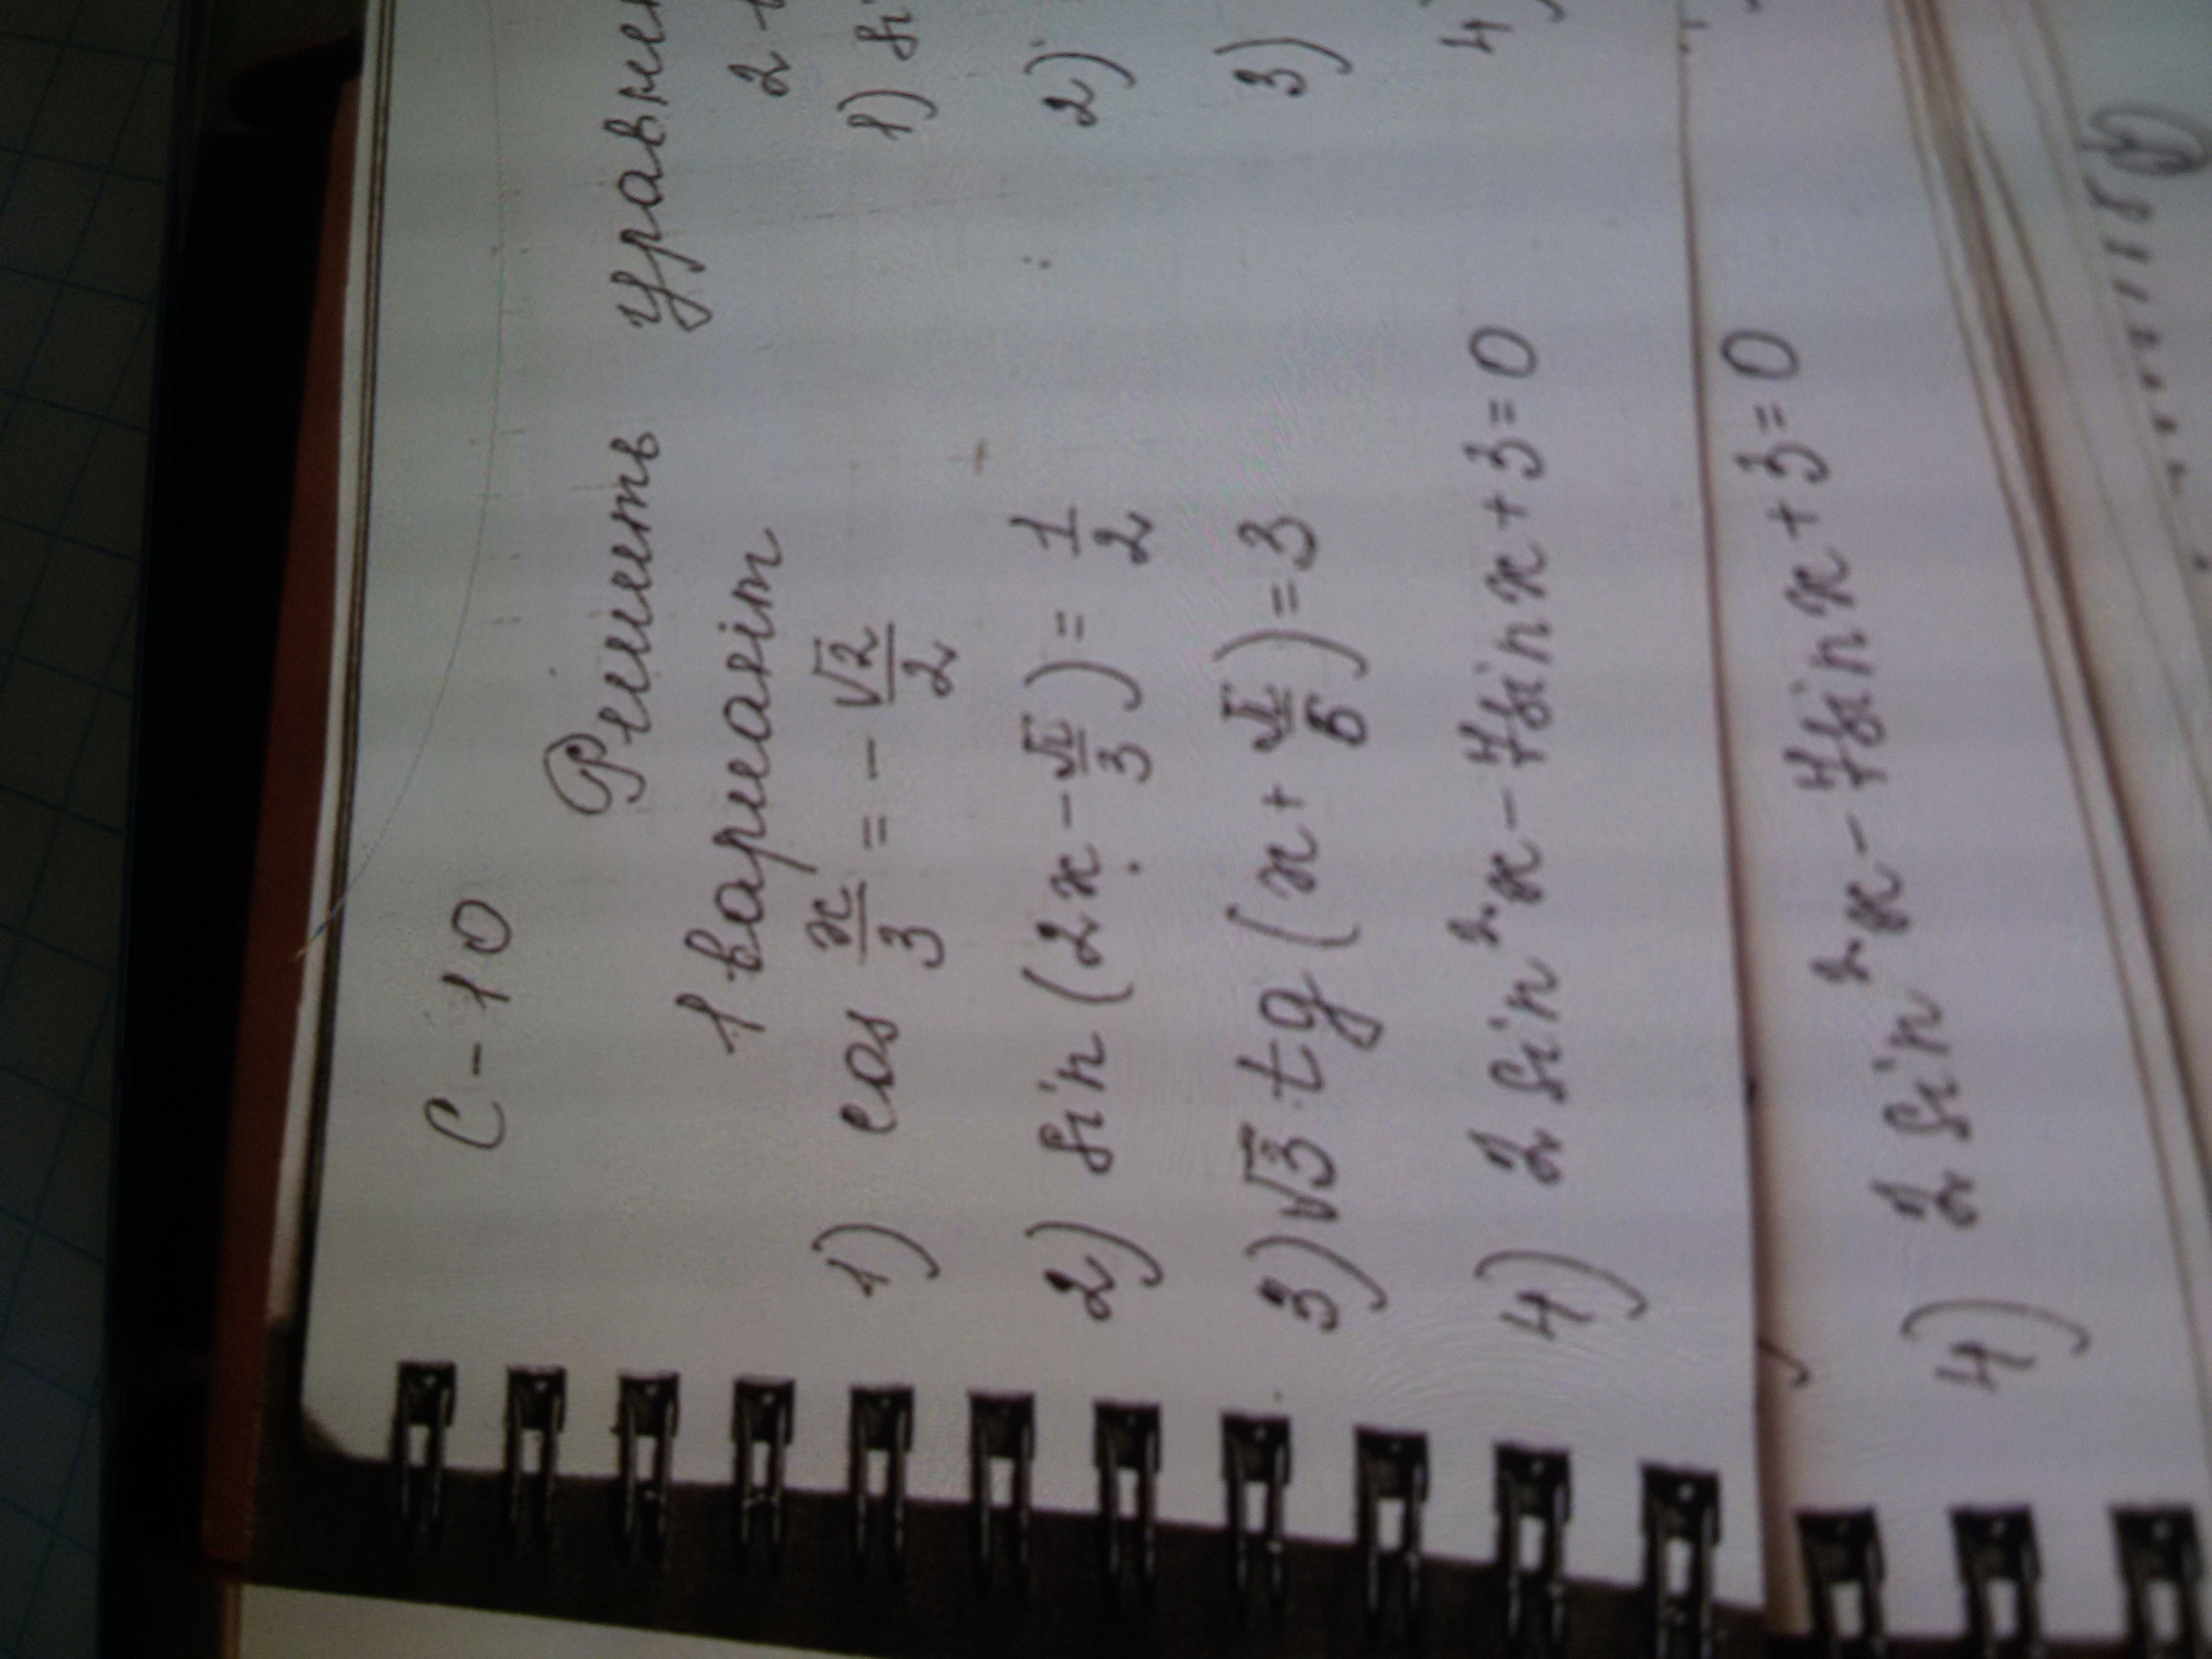 С-10
Решить уравнен
1 вариант
1) cos x/3 = - √2/2
2) sin (2x - π/3) = 1/2
3) √3 tg (x + π/6) = 3
4) 2 sin²x - 7 sin x + 3 = 0
2
1) si
2)
3)
4)
4) 2 sin²x - 7 sin x + 3 = 0